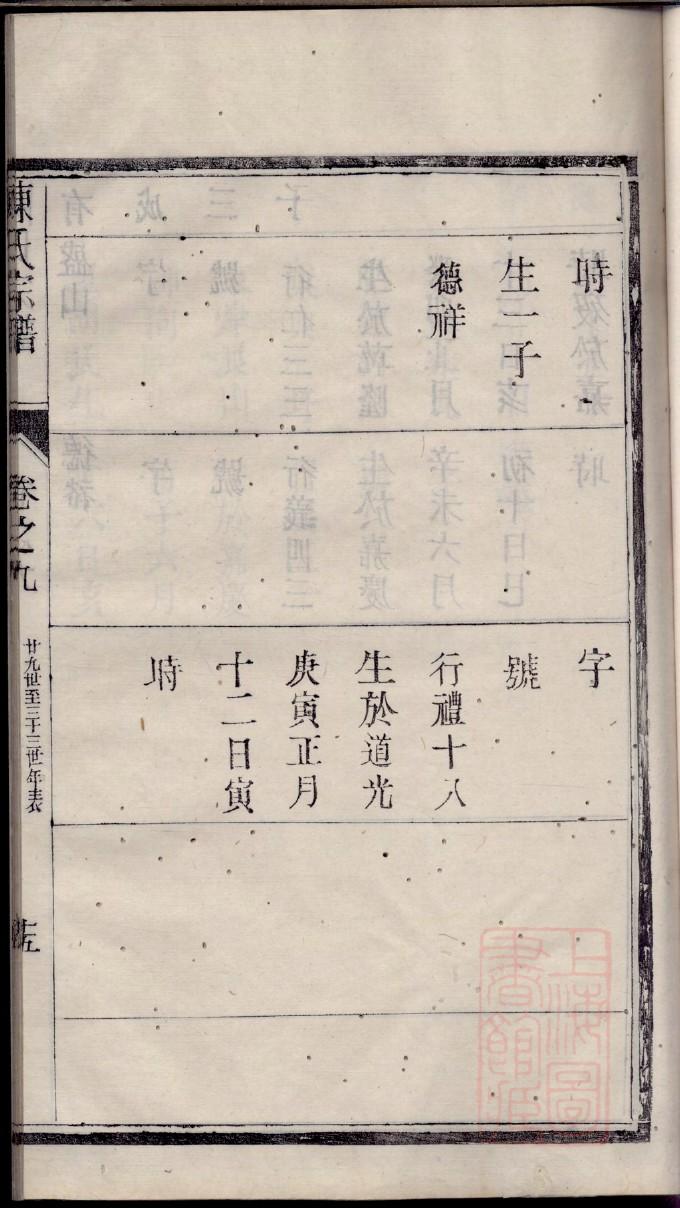 時
生一子
德祥
字
號
行禮十八
生於道光
庚寅正月
十二日寅
時
陳氏宗譜
卷之九
廿九世至三十三世年表
上海圖書館藏